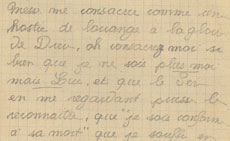 messe me consacre comme une
hostie de louange à la gloire
de Dieu, oh consacrez moi si
bien que je ne sois plus moi
mais Lui, et que le Père
en me regardant puisse le
reconnaître, que "je sois conforme
à sa mort" que je souffre en